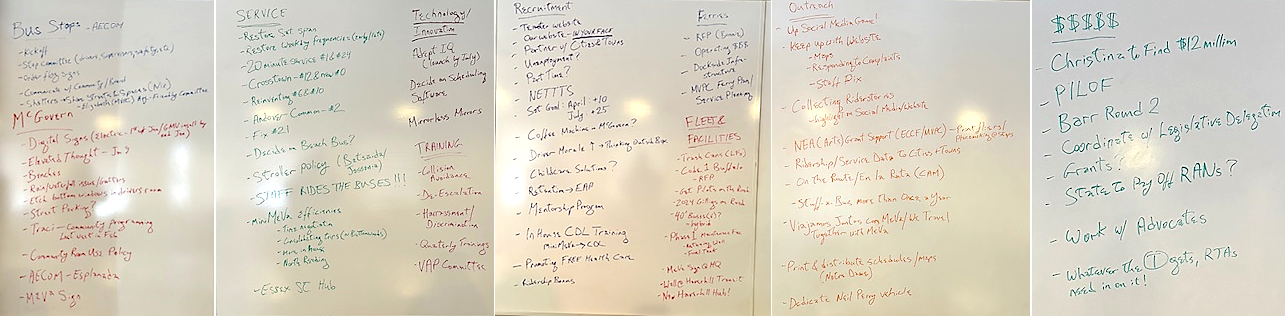 Bus Stops - AECOM
- Kickoff
- Stop Committee (drivers, supervisors, safety, etc)
- Order flag signs
- Communicate w/ Community/Board
- Shelters →
McGovern
- Digital Signs
- Elevated Thought - Jan 9
- Benches
- Rain/water/all issues/gutters
- Etch bottom windows in drivers room
- Street Parking?
- Traci - Community Programming
- Community Room Use Policy
- AECOM - Esplanada
- MeVa Sign
SERVICE
- Restore Sat. span
- Restore Weekday frequencies (early/late)
- 20 minute service #1 & #24
- Crosstown - #12 & new #0
- Reinventing #6 & #10
- Andover Common - #2
- Fix #21
- Decide on Beach Bus?
- Stroller policy (Betsaida/
- STAFF RIDES THE BUSES !!!
- miniMeVa efficiencies
- Time negotiation
- Hire in-house
- North Reading
- Essex St Hub
Technology/
Innovation
- Adept IQ
(launch by July)
- Decide on Scheduling
Software
- Mirrorless Mirrors
TRAINING
- Collision
Avoidance
- De-Escalation
- Harrassment/
Discrimination
- Quarterly Trainings
- VAP Committee
Recruitment
- Our website - IN YOUR FACE
- Partner w/ Cities & Towns
- Unemployment?
- Part Time?
- NETTTS
- Set Goal: April: +10
July: +25
- Coffee Machine in McGovern?
- Driver Morale ↑ → Thinking Outside Box
- Childcare Solutions?
- Retention → EAP
- Mentorship Program
- In House CDL Training
miniMeVa → CDL
- Promoting FREE Health Care
- Ridership Bonus
Ferries
- RFP (Ennis)
- Operating $$$
- Dockside Infra-
structure
- MVPC Ferry Plan/
Service Planning
FLEET &
FACILITIES
- Trash Cans
- Code 1 Buffalo
- RFP
- Get Plates on the Road
- 2024 Gilligs on Road
- 40' Buses(?)
- hybrid
- MeVa Sign @ HQ
- Wall @ Haverhill Transit
- New Haverhill Hub!
Outreach
- Up Social Media Game!
- Keep up with Website
- Maps
- Responding to Complaints
- Staff Pix
- Collecting Rider Stories
- highlight on Social Media/Website
- NEA (Arts) Grant Support (ECCF/MVPC) -
- Ridership/Service Data to Cities + Towns
- On the Route/En la Ruta (CAM)
- Stuff a Bus more than Once a Year
- Viajamos Juntos con MeVa/We Travel
Together with MeVa
- Print & distribute schedules/maps
(Notre Dame)
- Dedicate Neil Perry vehicle
$$$$$
- Christina to Find $12 million
- PILOF
- Barr Round 2
- Coordinate w/ Legislative Delegation
- Grants?
- State to Pay Off RANs?
- Work w/ Advocates
- Whatever the T gets, RTAs
need in on it!